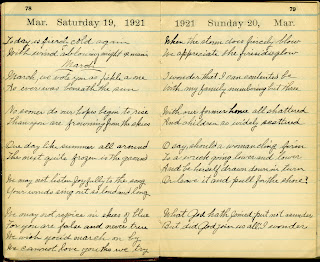 78
Mar. Saturday 19, 1921
Today is fiercly cold again
With wind a blowing might & main
March
March, we vote you as fickle a one
As ever was beneath the sun
No sooner do our hopes begin to rise
Than you are frowning from the skies
One day like summer all around
The next quite frozen is the ground
We may not listen joyfully to the song
Your winds sing out so loud and long
We may not rejoice in skies of blue
For you are false and never true
We wish you'd march on by
We cannot love you tho we try
79
1921 Sunday 20, Mar.
When the storm does fiercely blow
We appreciate the fireside glow
I wonder that I can contented be
With my family numbering but three
With our former home all shattered
And children so widely scattered
O say should a woman cling for in
To a wreck going lower and lower
And be himself drawn down in turn
Or leave it and pull for the shore?
What God hath joined put not asunder
But did God join us all? I wonder